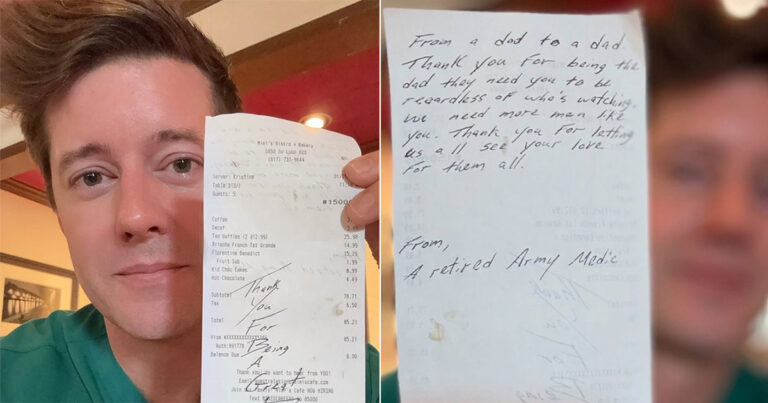 Mimi's Bistro + Bakery
5858 SW Loop 820
(817) 731-9644
Server: Kristine
Table 310/1
Guests: 5
#1500
Coffee
Decaf
Two Waffles (2 @12.99) 25.98
Brioche French Tst Grande 14.99
Florentine Benedict 15.29
Fruit Sub 1.99
Kid Choc Cakes 6.99
Hot Chocolate 4.49
Subtotal 78.71
Tax 6.50
Total 85.21
85.21
Balance Due 0.00
Thank you, do want to hear from YOU!
Thank
You
For
Being
A
Great
From a dad to a dad
Thank you For being the
dad they need you to be
regardless of who's watching.
We need more men like
you. Thank you For letting
us all see your love
For them all.
From,
A retired Army Medic